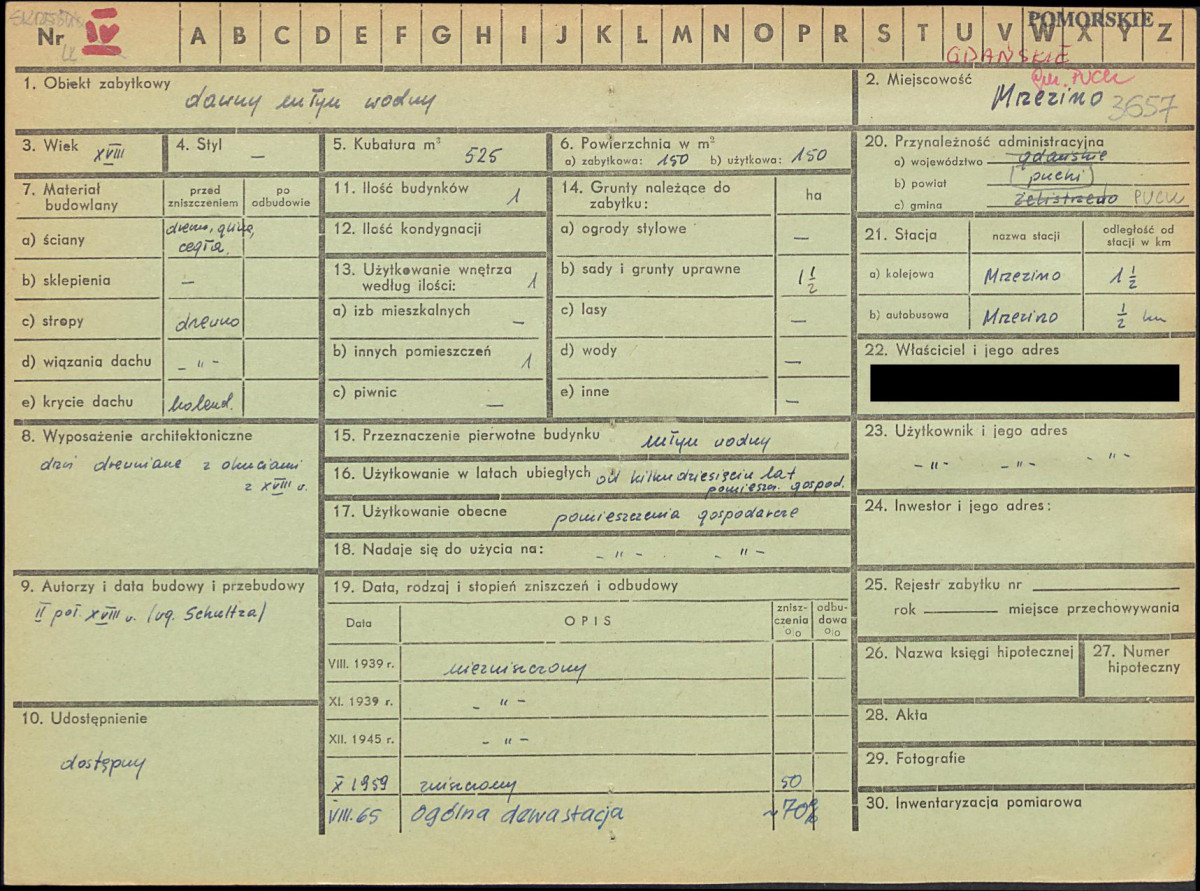 POMORSKIE
Nr IV A B C D E F G H I J K L M N O P R S T U V W X Y Z
GDAŃSKIE
1. Obiekt zabytkowy
dawny młyn wodny
2. Miejscowość
gm. PUCK
Mrzezino 3657
3. Wiek XVIII
4. Styl —
5. Kubatura m³ 525
6. Powierzchnia w m²
a) zabytkowa: 150 b) użytkowa: 150
20. Przynależność administracyjna
a) województwo gdańskie
b) powiat pucki
c) gmina Żelistrzewo PUCK
7. Materiał budowlany
przed zniszczeniem
po odbudowie
a) ściany drewno, glina,
cegła.
b) sklepienia —
c) stropy drewno
d) wiązania dachu - „ -
e) krycie dachu holend.
11. Ilość budynków 1
12. Ilość kondygnacji
13. Użytkowanie wnętrza
według ilości: 1
a) izb mieszkalnych —
b) innych pomieszczeń 1
c) piwnic —
14. Grunty należące do
zabytku:
ha
a) ogrody stylowe —
b) sady i grunty uprawne 1 1/2
c) lasy —
d) wody —
e) inne —
21. Stacja
nazwa stacji
odległość od
stacji w km
a) kolejowa Mrzezino 1 1/2
b) autobusowa Mrzezino 1/2 km
22. Właściciel i jego adres
8. Wyposażenie architektoniczne
drzwi drewniane z okuciami
z XVIII w.
15. Przeznaczenie pierwotne budynku młyn wodny
16. Użytkowanie w latach ubiegłych od kilkudziesięciu lat
pomieszcz. gospod.
17. Użytkowanie obecne pomieszczenia gospodarcze
18. Nadaje się do użycia na: - „ - - „ -
23. Użytkownik i jego adres
- „ - - „ - - „ -
24. Inwestor i jego adres:
9. Autorzy i data budowy i przebudowy
II poł. XVIII w. (wg. Schultza)
10. Udostępnienie
dostępny
19. Data, rodzaj i stopień zniszczeń i odbudowy
Data
OPIS
znisz-
czenia
o|o
odbu-
dowa
o|o
VIII. 1939 r. niezniszczony
XI. 1939 r. - „ -
XII. 1945 r. - „ -
X 1959 zniszczony 50
VIII.65 ogólna dewastacja ~70%
25. Rejestr zabytku nr
rok miejsce przechowywania
26. Nazwa księgi hipotecznej
27. Numer
hipoteczny
28. Akta
29. Fotografie
30. Inwentaryzacja pomiarowa